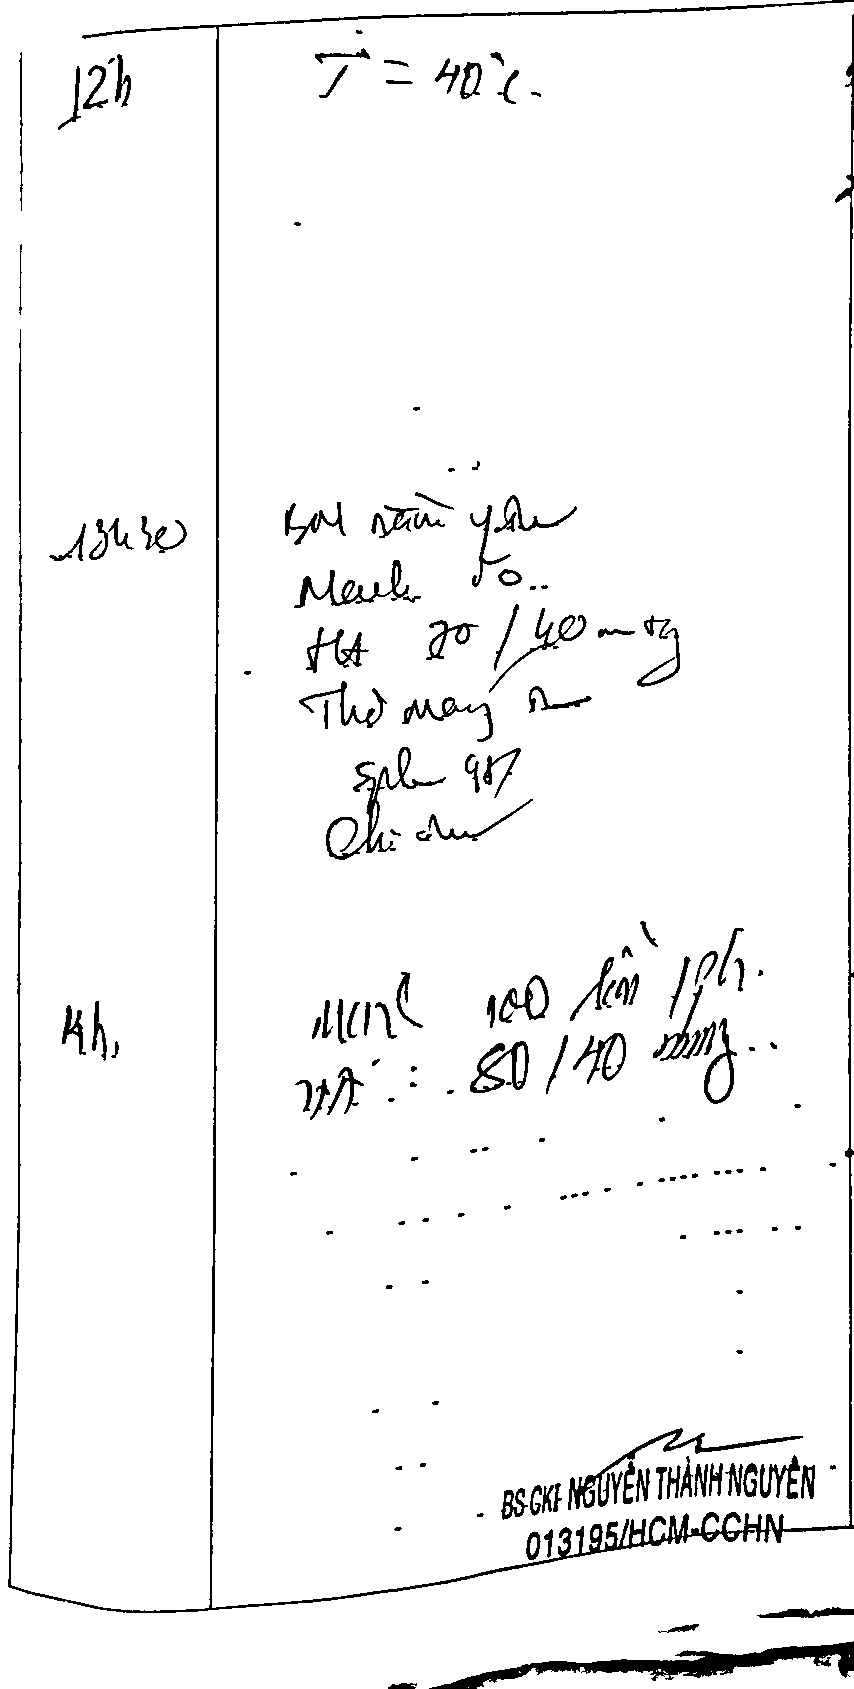 12h T = 40°C.
13h30 BN nằm yên
Mạch
HA 70/40 mmHg
Thở máy
SpO2 98%
Chi ấm
14h, Mạch 100 lần/ph.
HA : 80/40 mmHg
BS.CKI NGUYỄN THÀNH NGUYÊN
013195/HCM-CCHN